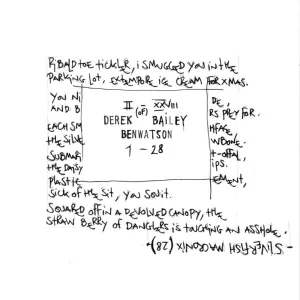 RIBALD TOE TICKLER, I SMUGGLED YOU IN THE
PARKING LOT, EXTEMPORE ICE CREAM FOR XMAS.
YOU NI
AND B
EACH SM
THE SILVE
SUBMAR
THE DAISY
PLASTIC
II (OF) XXVIII
DEREK BAILEY
BEN WATSON
1 - 28
DE,
RS PREY FOR.
HFACE,
WBONE.
T-OFFAL,
IPS.
EMENT,
SICK OF THE SIT, YOU SQUIT.
SQUARED OFF IN A DEVOLVED CANOPY, THE
STRAW BERRY OF DANGLERS IS TOUCHING AN ASSHOLE.
- SILVERFISH MACRONIX (28) -